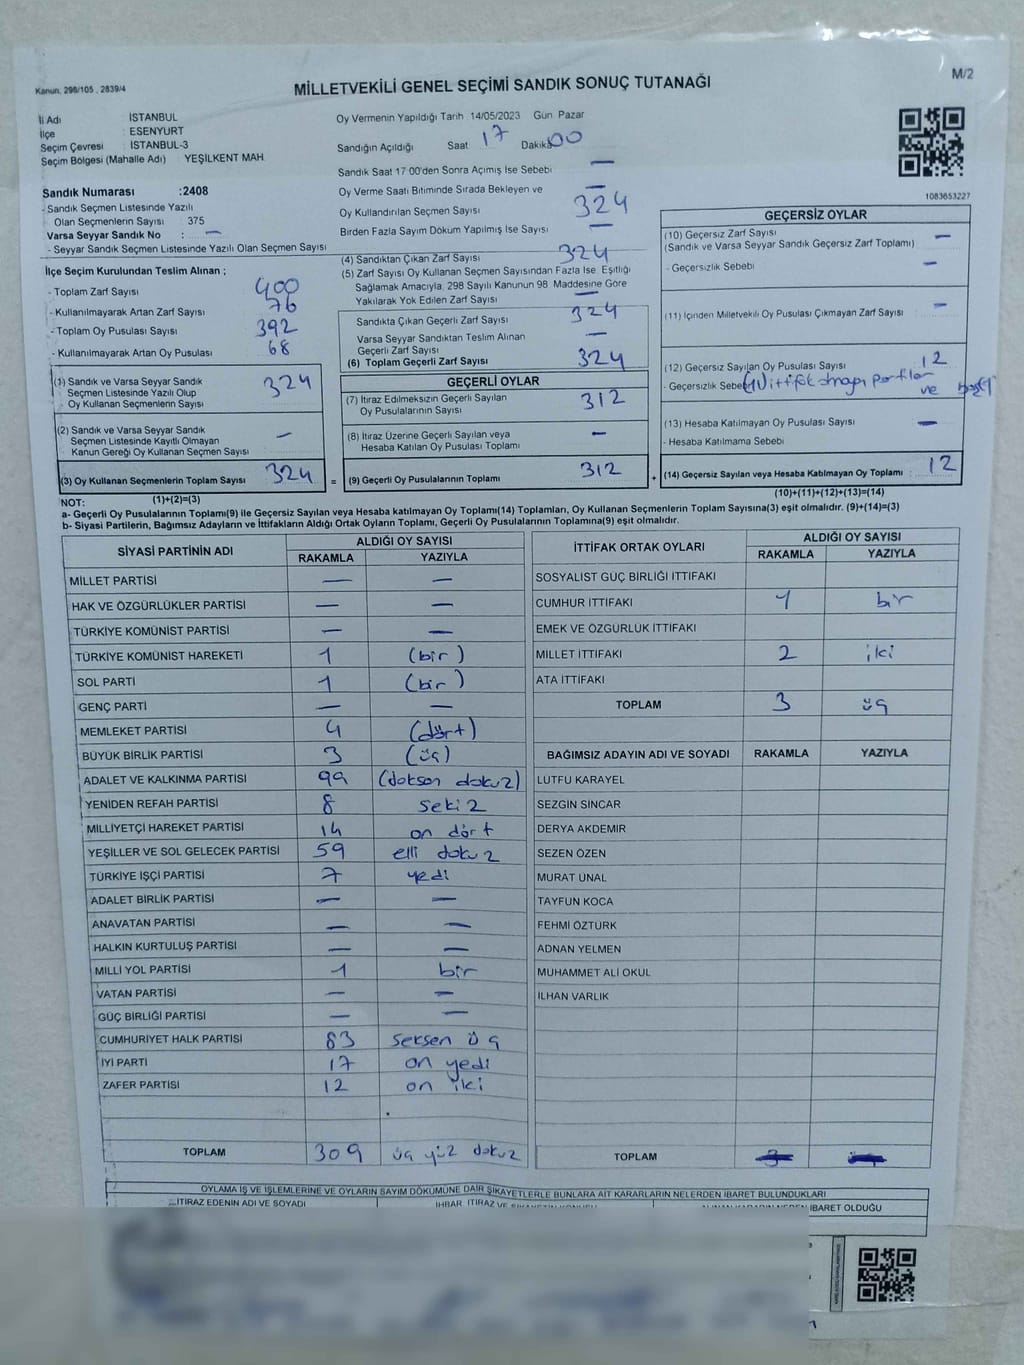 Kanun, 298/105 , 2839/4
MİLLETVEKİLİ GENEL SEÇİMİ SANDIK SONUÇ TUTANAĞI
M/2
İl Adı İSTANBUL
İlçe : ESENYURT
Seçim Çevresi : İSTANBUL-3
Seçim Bölgesi (Mahalle Adı) YEŞİLKENT MAH
Sandık Numarası :2408
- Sandık Seçmen Listesinde Yazılı
Olan Seçmenlerin Sayısı 375
Varsa Seyyar Sandık No : —
- Seyyar Sandık Seçmen Listesinde Yazılı Olan Seçmen Sayısı
İlçe Seçim Kurulundan Teslim Alınan ;
- Toplam Zarf Sayısı 400
- Kullanılmayarak Artan Zarf Sayısı 76
- Toplam Oy Pusulası Sayısı 392
- Kullanılmayarak Artan Oy Pusulası 68
(1) Sandık ve Varsa Seyyar Sandık
Seçmen Listesinde Yazılı Olup 324
Oy Kullanan Seçmenlerin Sayısı
(2) Sandık ve Varsa Seyyar Sandık
Seçmen Listesinde Kayıtlı Olmayan —
Kanun Gereği Oy Kullanan Seçmen Sayısı
(3) Oy Kullanan Seçmenlerin Toplam Sayısı 324
(1)+(2)=(3)
Oy Vermenin Yapıldığı Tarih 14/05/2023 Gün Pazar
Sandığın Açıldığı Saat 17 Dakika 00
Sandık Saat 17 00'den Sonra Açımış İse Sebebi —
Oy Verme Saati Bitiminde Sırada Bekleyen ve —
Oy Kullandırılan Seçmen Sayısı 324
Birden Fazla Sayım Döküm Yapılmış İse Sayısı —
(4) Sandıktan Çıkan Zarf Sayısı 324
(5) Zarf Sayısı Oy Kullanan Seçmen Sayısından Fazla İse. Eşitliği
Sağlamak Amacıyla, 298 Sayılı Kanunun 98 Maddesine Göre
Yakılarak Yok Edilen Zarf Sayısı —
Sandıkta Çıkan Geçerli Zarf Sayısı 324
Varsa Seyyar Sandıktan Teslim Alınan —
Geçerli Zarf Sayısı
(6) Toplam Geçerli Zarf Sayısı 324
GEÇERLİ OYLAR
(7) İtiraz Edilmeksizin Geçerli Sayılan 312
Oy Pusulalarının Sayısı
(8) İtiraz Üzerine Geçerli Sayılan veya —
Hesaba Katılan Oy Pusulası Toplamı
= (9) Geçerli Oy Pusulalarının Toplamı 312
1083653227
GEÇERSİZ OYLAR
(10) Geçersiz Zarf Sayısı —
(Sandık ve Varsa Seyyar Sandık Geçersiz Zarf Toplamı)
- Geçersizlik Sebebi —
(11) İçinden Milletvekili Oy Pusulası Çıkmayan Zarf Sayısı —
(12) Geçersiz Sayılan Oy Pusulası Sayısı 12
- Geçersizlik Sebebi
ve
(13) Hesaba Katılmayan Oy Pusulası Sayısı —
- Hesaba Katılmama Sebebi
+ (14) Geçersiz Sayılan veya Hesaba Katılmayan Oy Toplamı 12
(10)+(11)+(12)+(13)=(14)
NOT:
a- Geçerli Oy Pusulalarının Toplamı(9) ile Geçersiz Sayılan veya Hesaba katılmayan Oy Toplamı(14) Toplamları, Oy Kullanan Seçmenlerin Toplam Sayısına(3) eşit olmalıdır. (9)+(14)=(3)
b- Siyasi Partilerin, Bağımsız Adayların ve İttifakların Aldığı Ortak Oyların Toplamı, Geçerli Oy Pusulalarının Toplamına(9) eşit olmalıdır.
SİYASİ PARTİNİN ADI ALDIĞI OY SAYISI
RAKAMLA YAZIYLA
MİLLET PARTİSİ — —
HAK VE ÖZGÜRLÜKLER PARTİSİ — —
TÜRKİYE KOMÜNİST PARTİSİ — —
TÜRKİYE KOMÜNİST HAREKETİ 1 (bir)
SOL PARTİ 1 (bir)
GENÇ PARTİ — —
MEMLEKET PARTİSİ 4 (dört)
BÜYÜK BİRLİK PARTİSİ 3 (üç)
ADALET VE KALKINMA PARTİSİ 99 (doksan dokuz)
YENİDEN REFAH PARTİSİ 8 sekiz
MİLLİYETÇİ HAREKET PARTİSİ 14 on dört
YEŞİLLER VE SOL GELECEK PARTİSİ 59 elli dokuz
TÜRKİYE İŞÇİ PARTİSİ 7 yedi
ADALET BİRLİK PARTİSİ — —
ANAVATAN PARTİSİ — —
HALKIN KURTULUŞ PARTİSİ — —
MİLLİ YOL PARTİSİ 1 bir
VATAN PARTİSİ — —
GÜÇ BİRLİĞİ PARTİSİ — —
CUMHURİYET HALK PARTİSİ 83 seksen üç
İYİ PARTİ 17 on yedi
ZAFER PARTİSİ 12 on iki
TOPLAM 309 üç yüz dokuz
İTTİFAK ORTAK OYLARI ALDIĞI OY SAYISI
RAKAMLA YAZIYLA
SOSYALİST GÜÇ BİRLİĞİ İTTİFAKI
CUMHUR İTTİFAKI 1 bir
EMEK VE ÖZGÜRLÜK İTTİFAKI
MİLLET İTTİFAKI 2 iki
ATA İTTİFAKI
TOPLAM 3 üç
BAĞIMSIZ ADAYIN ADI VE SOYADI RAKAMLA YAZIYLA
LÜTFÜ KARAYEL
SEZGİN SİNCAR
DERYA AKDEMİR
SEZEN ÖZEN
MURAT ÜNAL
TAYFUN KOCA
FEHMİ ÖZTÜRK
ADNAN YELMEN
MUHAMMET ALİ OKUL
İLHAN VARLIK
TOPLAM
OYLAMA İŞ VE İŞLEMLERİNE VE OYLARIN SAYIM DÖKÜMÜNE DAİR ŞİKAYETLERLE BUNLARA AİT KARARLARIN NELERDEN İBARET BULUNDUKLARI
İTİRAZ EDENİN ADI VE SOYADI İHBAR, İTİRAZ VE ŞİKAYETİN KONUSU ALINAN KARARIN NEDEN İBARET OLDUĞU